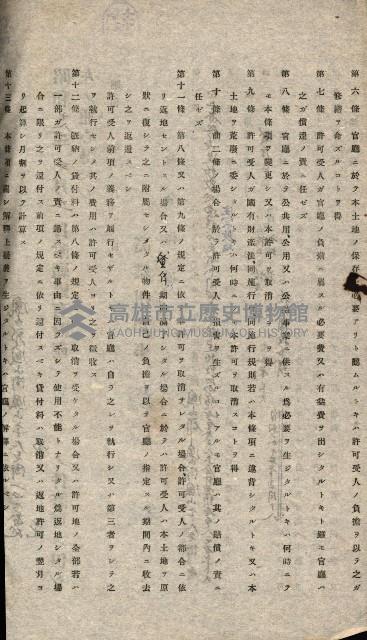 第六條 官廳ニ於テ本土地ノ保存上必要アリト認ムルトキハ許可受人ノ負擔ヲ以テ之ガ
修繕ヲ命ズルコトヲ得
第七條 許可受人ガ官廳ノ負擔ニ屬スル必要費又ハ有益費ヲ出シタルトキト雖モ官廳ハ
之ガ償還ノ責ニ任ゼズ
第八條 官廳ニ於テ公共用、公用又ハ公益事業ニ供スル爲必要ヲ生ジタルトキハ何時ニテ
モ本條項ヲ變更シ又ハ本許可ヲ取消スコトヲ得
第九條 許可受人ガ國有財產法、同施行令、同施行規則若ハ本條項ニ違背シタルトキ又ハ本
土地ヲ荒廢ニ委シタルトキハ何時ニテモ本許可ヲ取消スコトヲ得
第十條 前二條ノ場合ニ於テ許可受人ニ損害ヲ生ズルコトアルモ官廳ハ其ノ賠償ノ責ニ
任ゼズ
第十一條 第八條又ハ第九條ノ規定ニ依リ許可ヲ取消サレタル場合、許可受人ノ都合ニ依
リ返地セントスル場合又ハ 期間滿了シタル場合ニ於テハ許可受人ハ本土地ヲ原
狀ニ復シ之ニ附屬セシメタル物件ハ自己ノ負擔ヲ以テ官廳ノ指定スル期間內ニ收去
シ之ヲ返還スベシ
許可受人前項ノ義務ヲ履行セザルトキハ官廳ハ自ラ之ヲ執行シ又ハ第三者ヲシテ之
ヲ執行セシメ其ノ費用ハ許可受人ヨリ之ヲ徵收ス
第十二條 既納ノ貸付料ハ第八條ノ規定ニ依リ取消ヲ受ケタル場合又ハ許可地ノ全部若ハ
一部ガ許可受人ノ責ニ歸スベキ事由ニ因ラズシテ使用不能トナリタル爲返地シタル場
合ニ限リ之ヲ還付ス前項ノ規定ニ依リ還付スベキ貸付料ハ取消又ハ返地許可ノ翌月ヨ
リ起算シ月割ヲ以テ計算ス
第十三條 本條項ニ關シ解釋上疑義ヲ生ジタルトキハ官廳ノ解釋ニ依ルベシ
高雄市立歷史博物館
KAOHSIUNG MUSEUM OF HISTORY